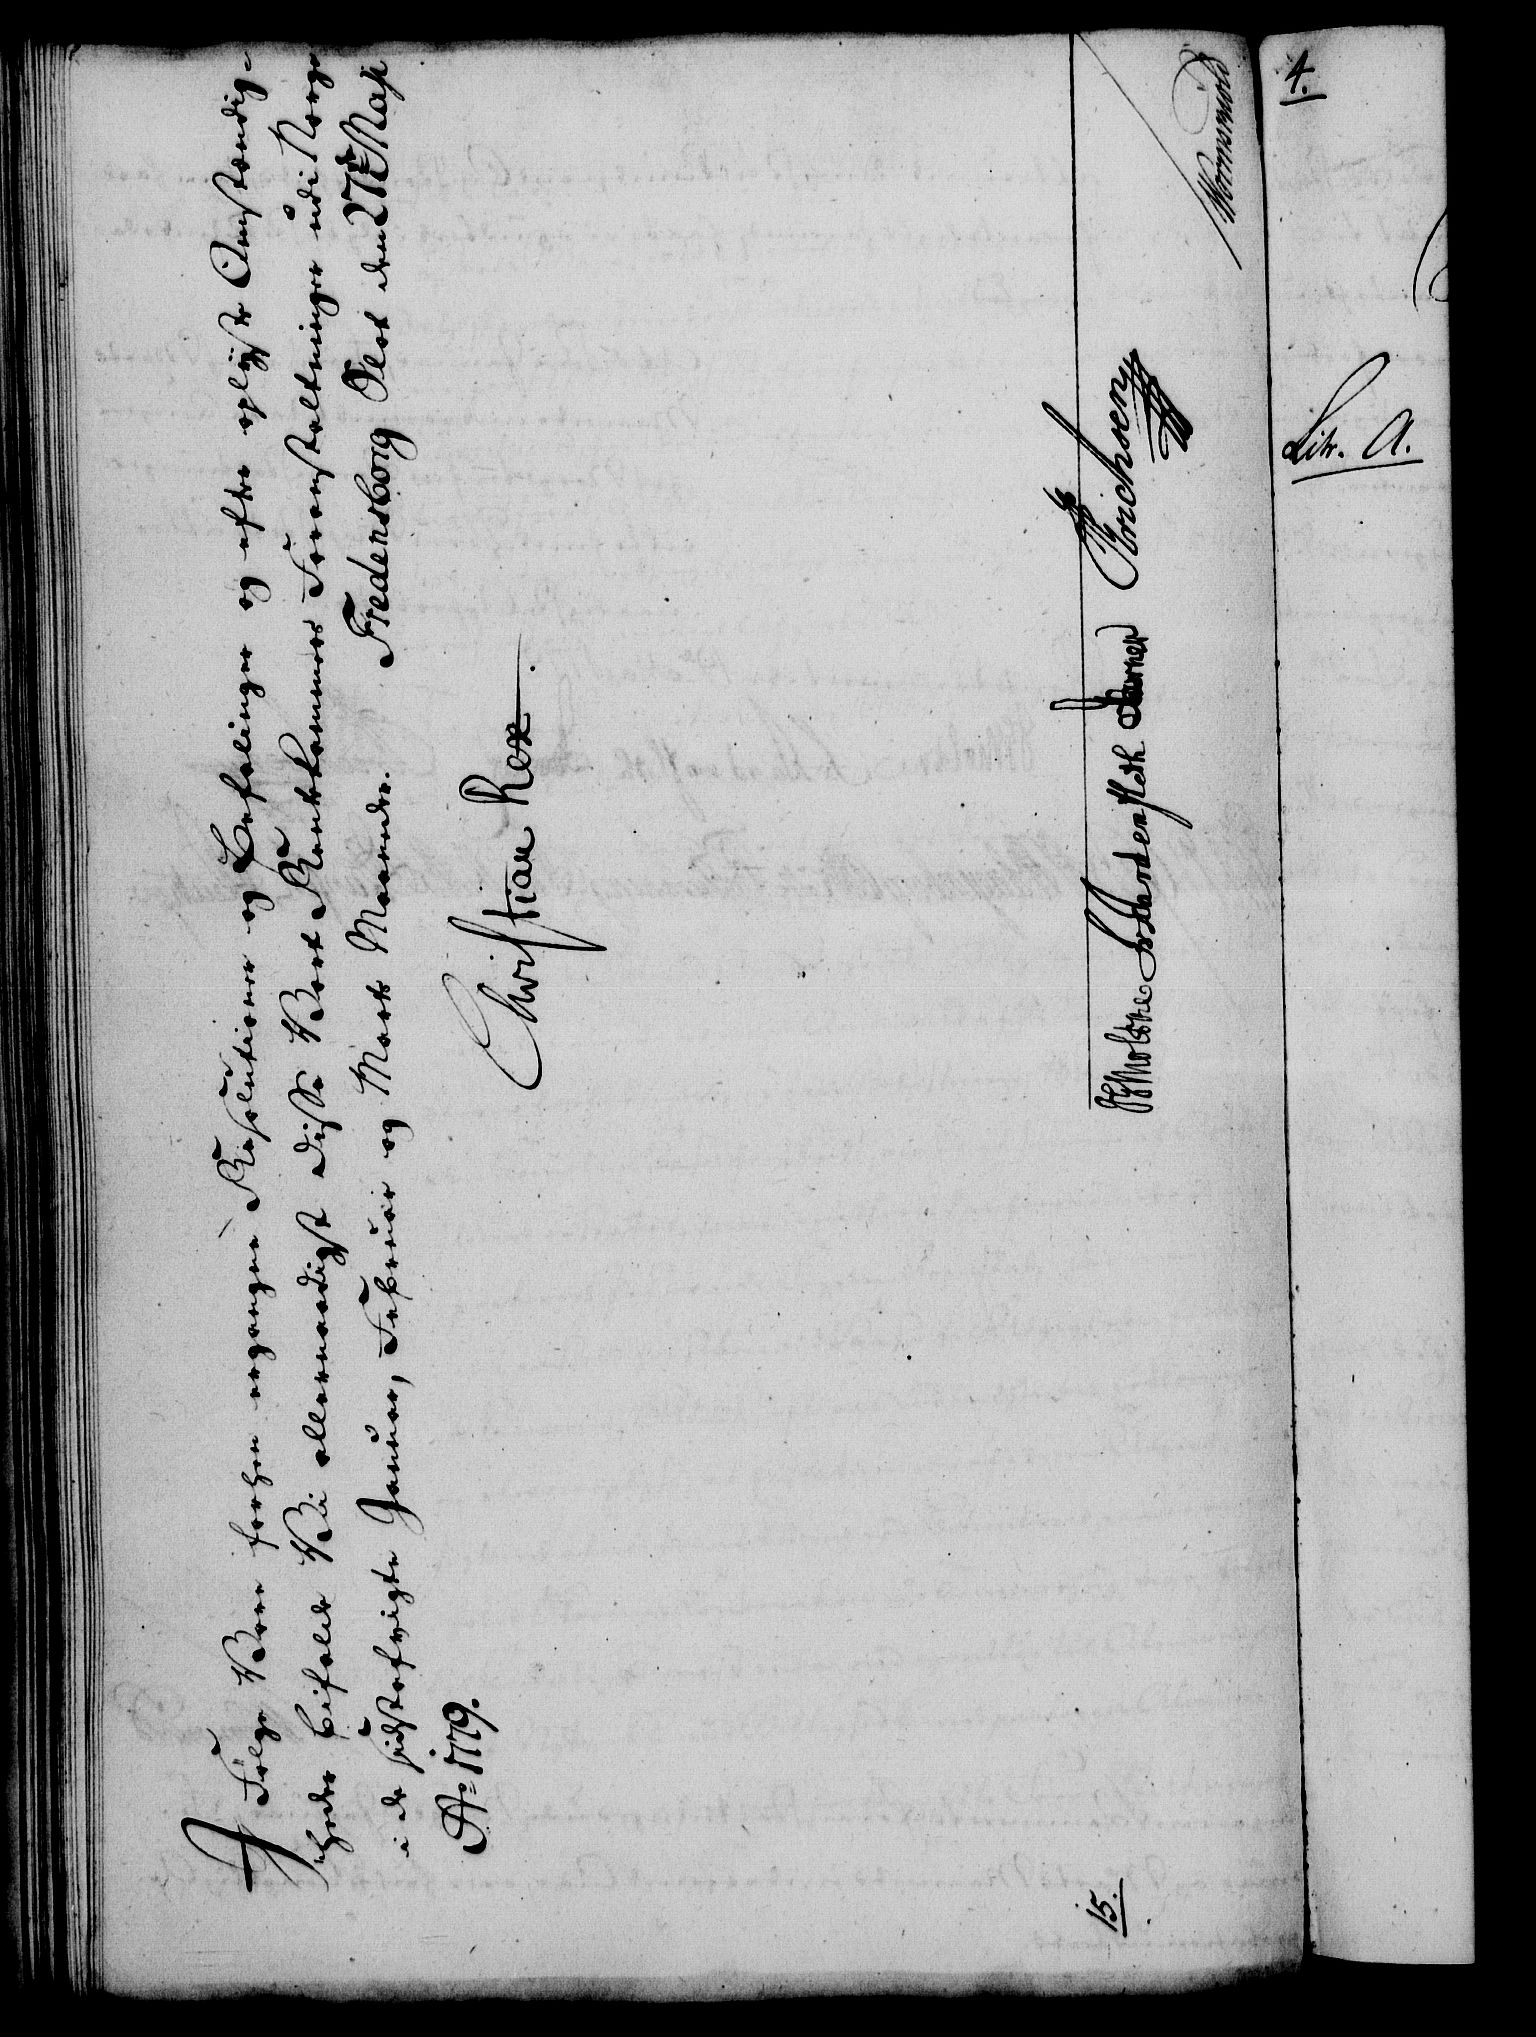 I Følge Vore forhen ergangne Resolutioner og Befalinger og efter oplyste Omstændig-
heder bifalde Vi allernaadigst disse Vort Rentekammers Foranstaltninger udi Norge
i de sidstafvigte Januar, Februar og Marts Maaneder. Fredensborg Slot den 27de Maji
Ao 1779.
Christian Rex.
JGMoltke Schardenfleth Erichsen
Wormskiold
15.
4.
Litr. A.